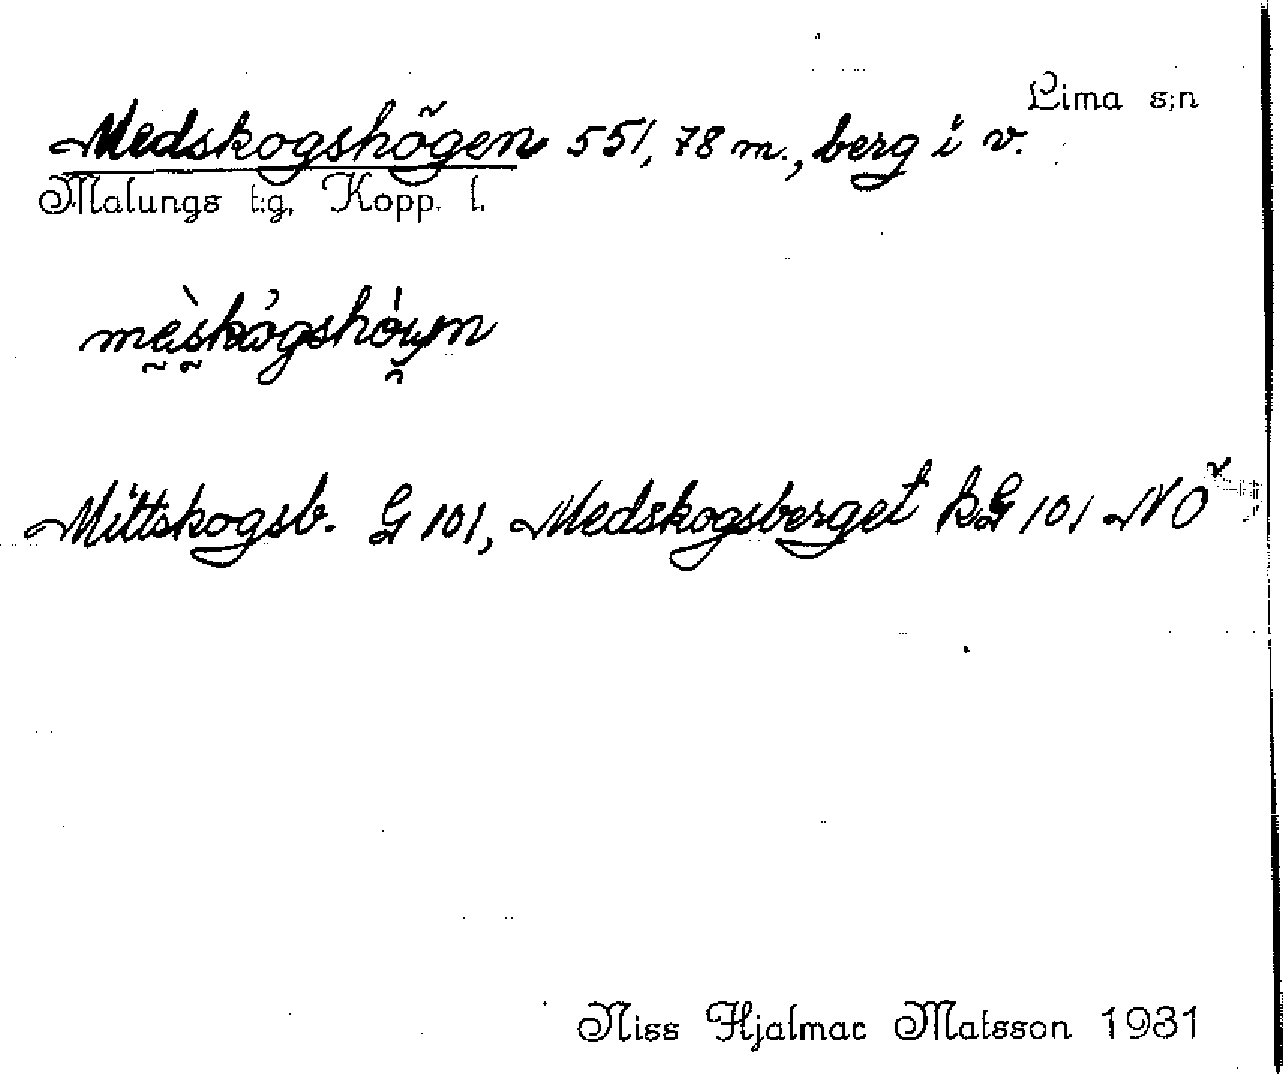 Lima s:n
Medskogshögen 551,78 m., berg i v.
Malungs t:g, Kopp. l.
mèskògshöγn
Mittskogsb. G 101, Medskogsberget kG 101 NO
Niss Hjalmar Matsson 1931